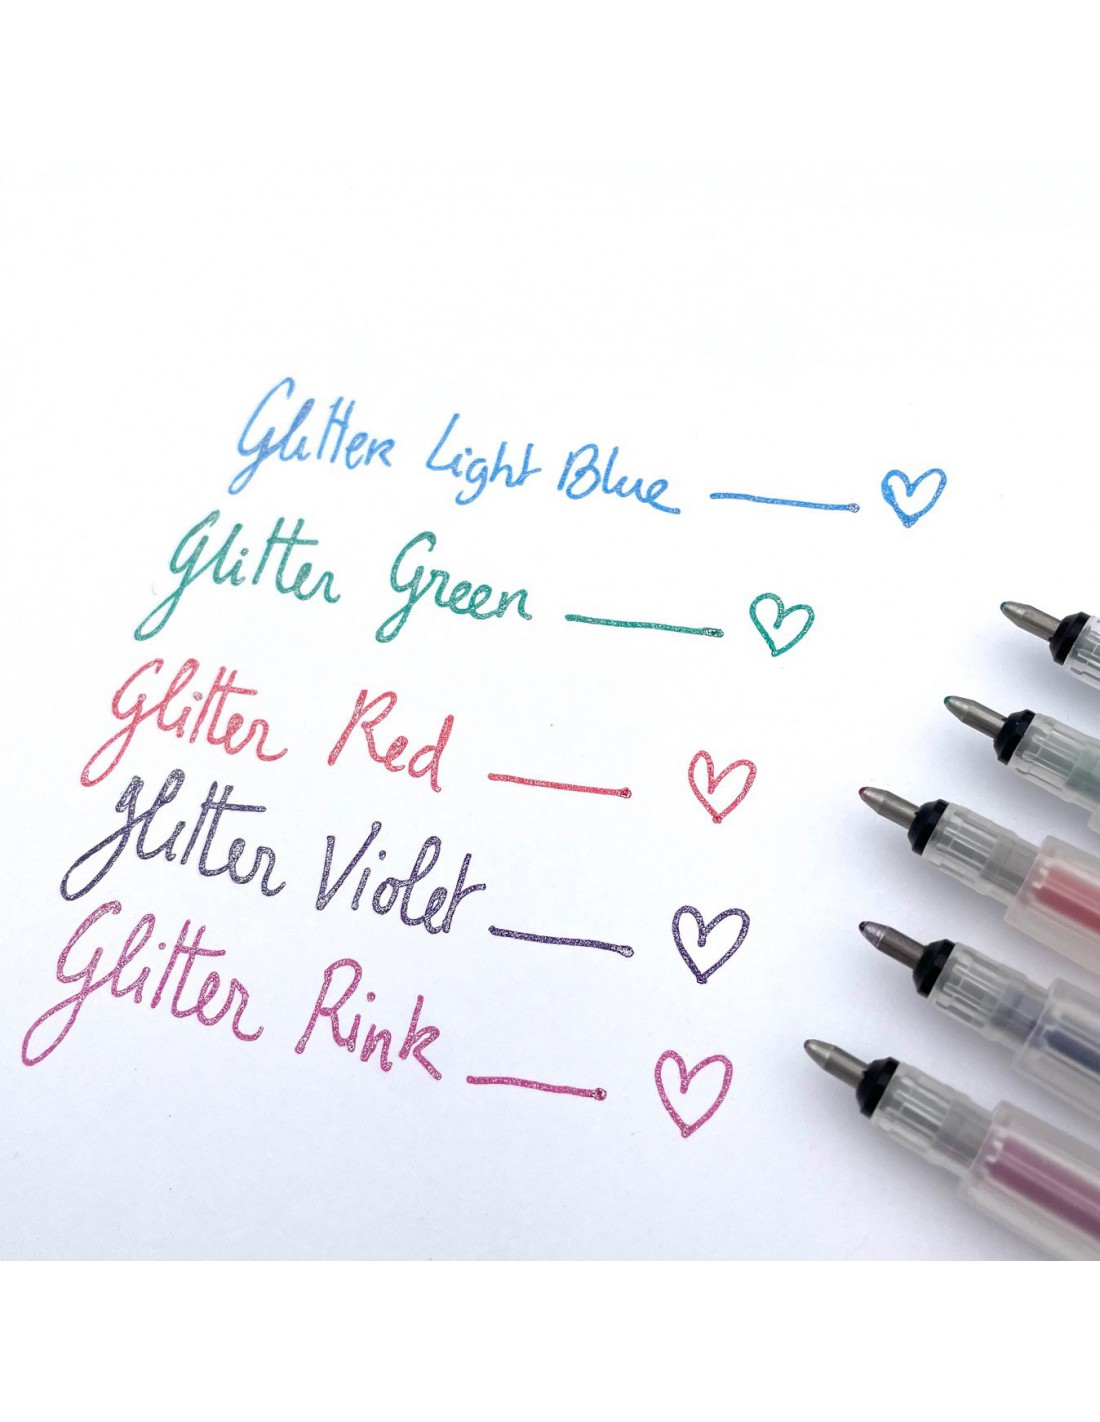 Glitter Light Blue
Glitter Green
Glitter Red
Glitter Violet
Glitter Pink